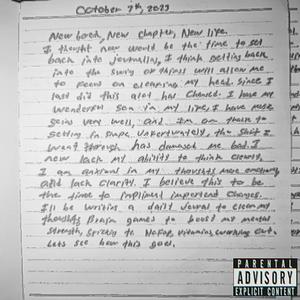 October 7th, 2023
New bored, New chapter, New life.
I thought now would be the time to get
back into journaling, I think getting back
into the swing of things will allow me
to focus on clearing my head. Since I
last did this alot has changed. I have my
wonderful son in my life, I have made
gains very well, and I'm on track to
getting in shape. Unfortunately, the shit I
went through has damaged me bad. I
now lack my ability to think clearly,
I am anxious in my thoughts, more emotional
and lack clarity. I believe this to be
the time to impliment important changes.
I'll be writing a daily Journal to clean my
thoughts, Brain games to boost my mental
strength, sticking to NoFap, vitamins, working out.
Lets see how this goes.
PARENTAL
ADVISORY
EXPLICIT CONTENT